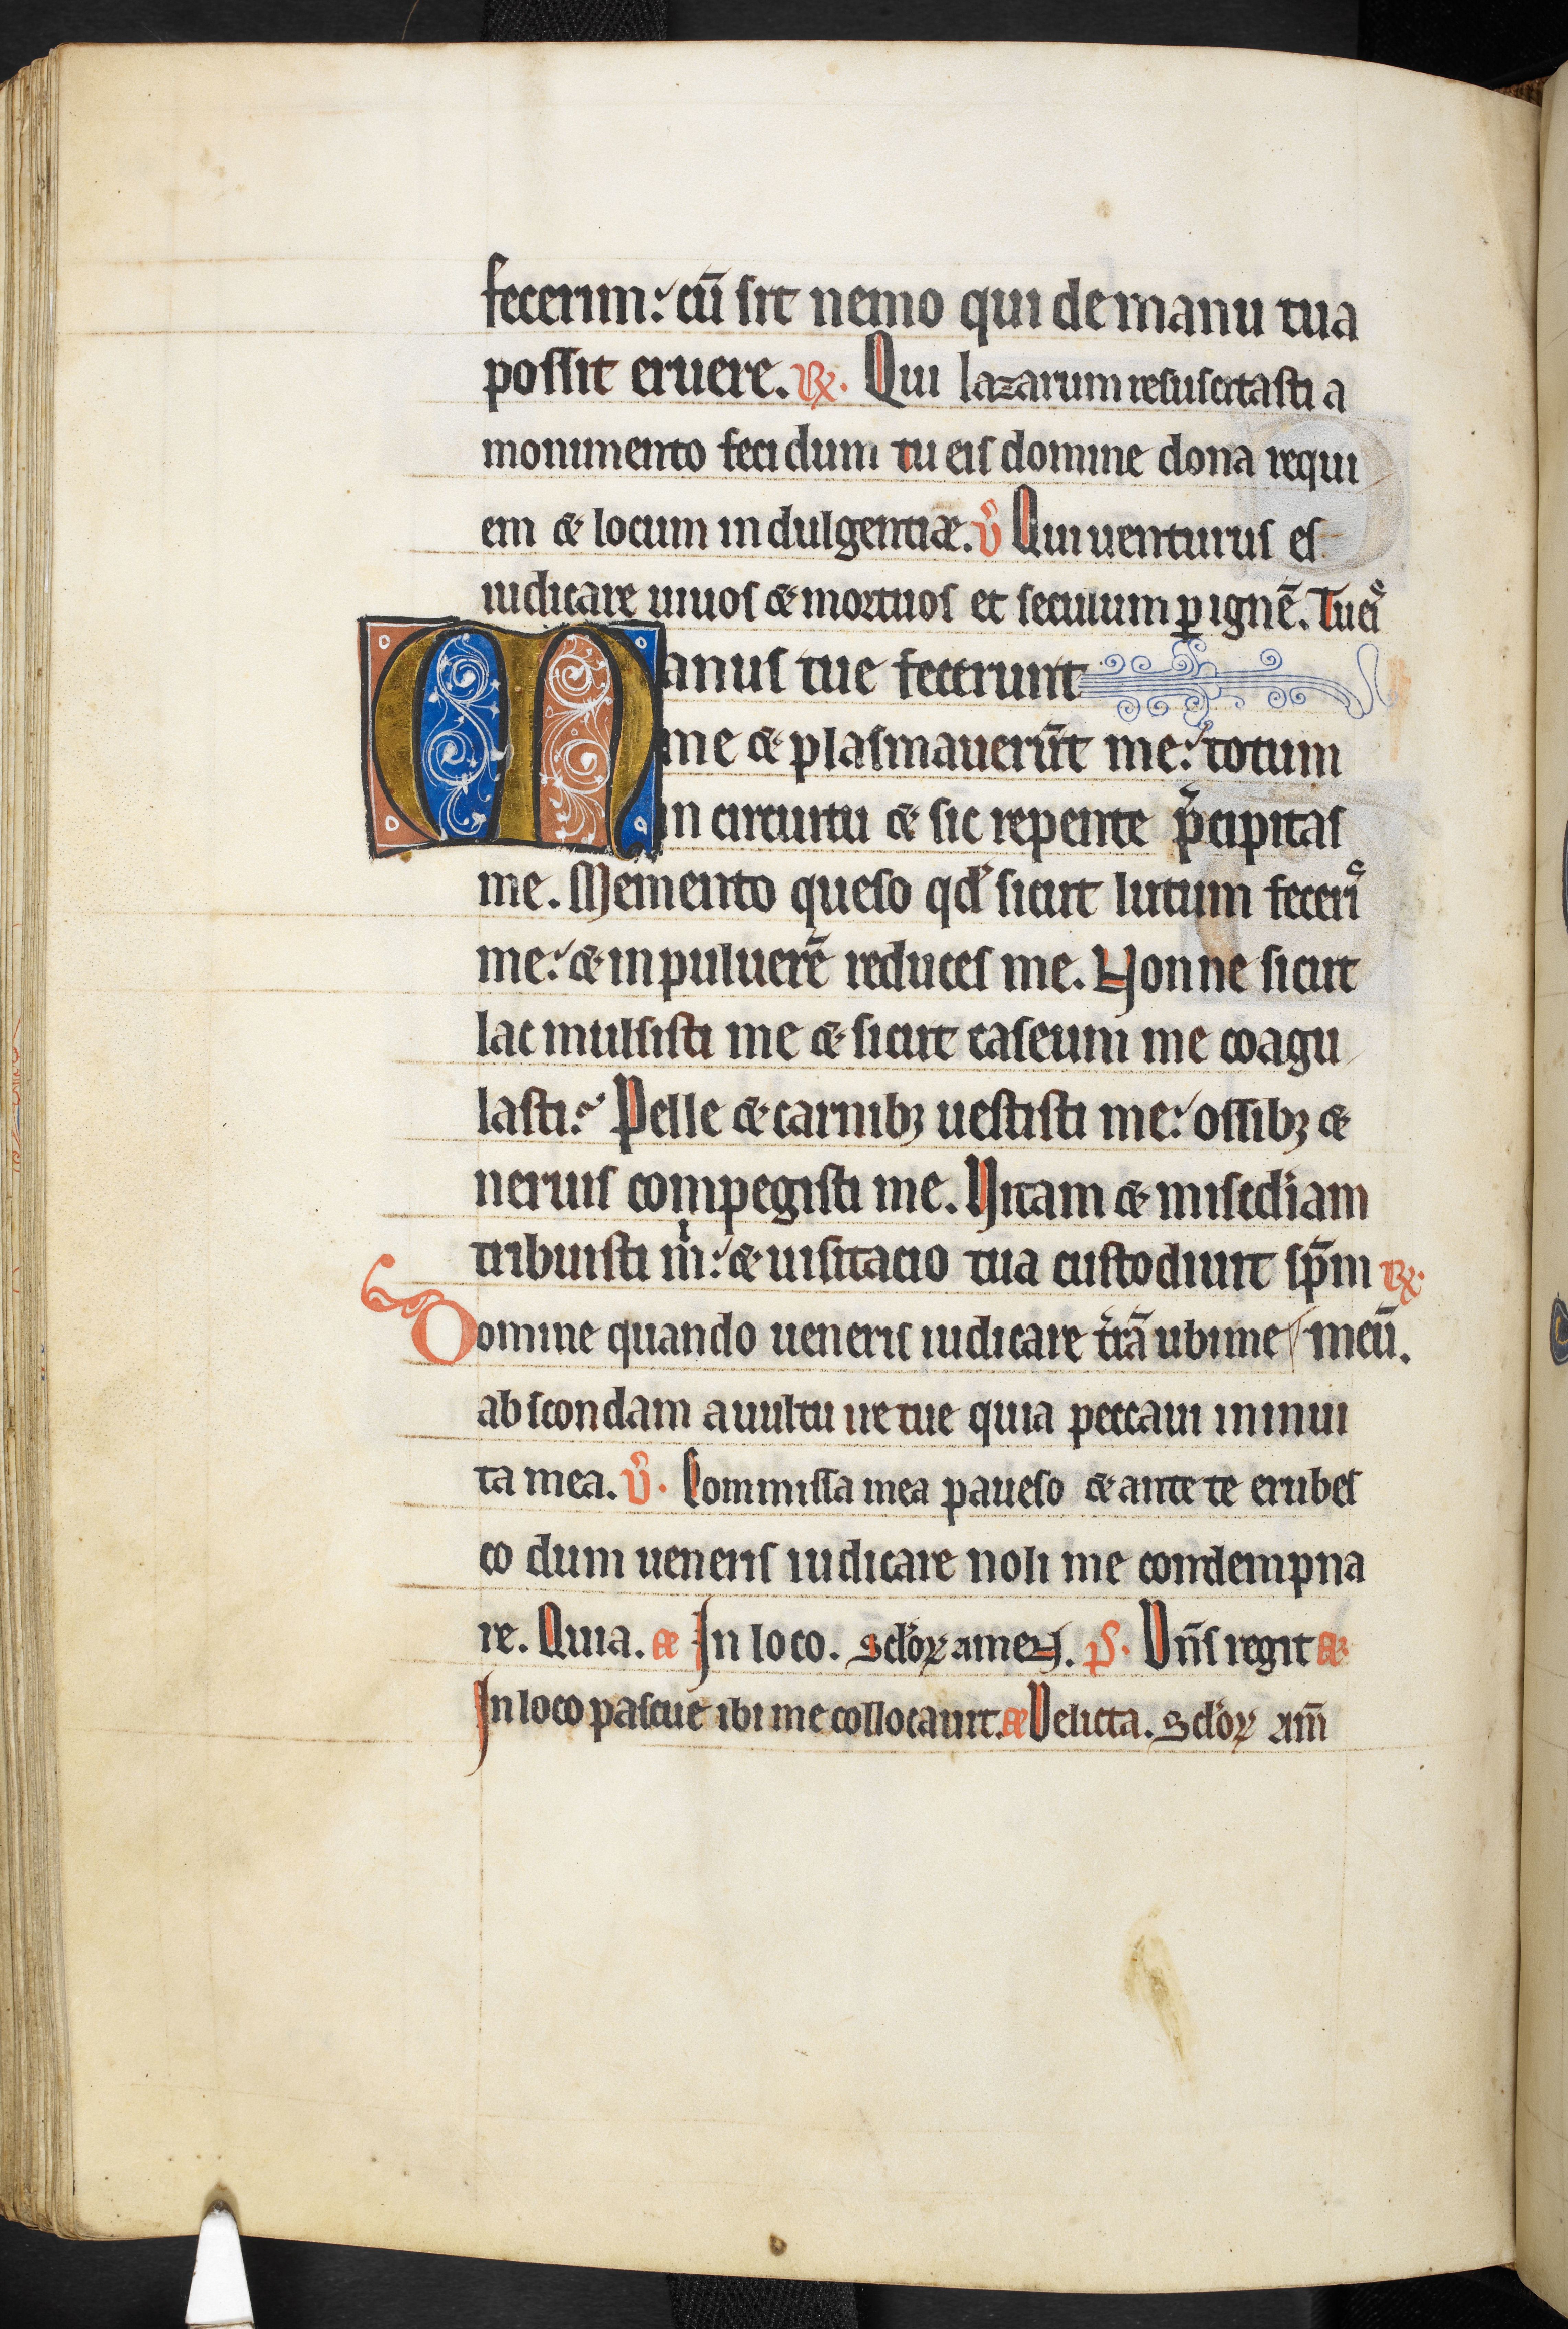 fecerim: cū sit nemo qui de manu tua
possit eruere. R̸. Qui lazarum resuscitasti a
monimento fecidum tu eis domine dona requi
em & locum indulgentiæ. V̊ Qui uenturus es
iudicare uiuos & mortuos et seculum ꝑ ignē. Tu eiˢ
Manus tue fecerunt
me & plasmauerūt me: totum
in circuitu & sic repente p̄cipitas
me. Memento queso qd̕ sicut lutum feceriˢ
me: & in puluerē reduces me. Nonne sicut
lac mulsisti me & sicut caseum me coagu
lasti? Pelle & carnibꝫ uestisti me: ossibꝫ &
neruis compegisti me. Vitam & misc̕diam
tribuisti m̍: & uisitacio tua custodiuit sp̄m R̸.
Domine quando ueneris iudicare t̄rā ubi me / meū.
abscondam a uultu ire tue quia peccaui in inui
ta mea. V̊. Commissa mea paueso & ante te erubes
co dum ueneris iudicare noli me condempna
re. Quia. æ In loco. Sc̄loꝝ amen. p̕s. Dn̄s regit æ
In loco pascue ibi me collocauit. æ Delicta. Sc̄loꝝ am̄